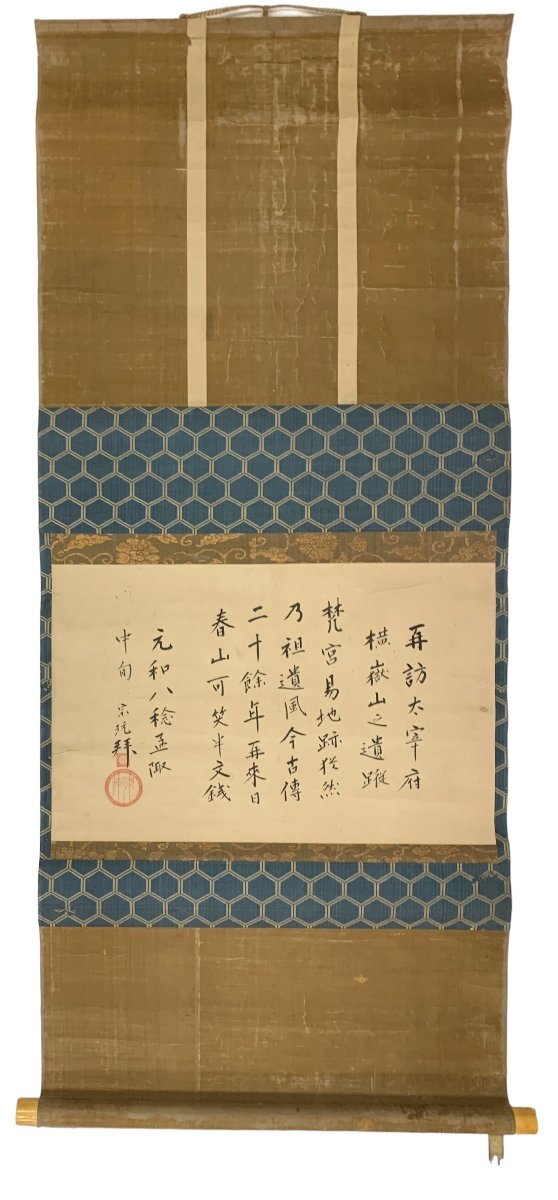 再訪太宰府
横嶽山之遺蹤
梵宮易地跡猶然
乃祖遺風今古傳
二十餘年再來日
春山可笑半文錢
元和八稔孟陬
中旬 宗玩拜